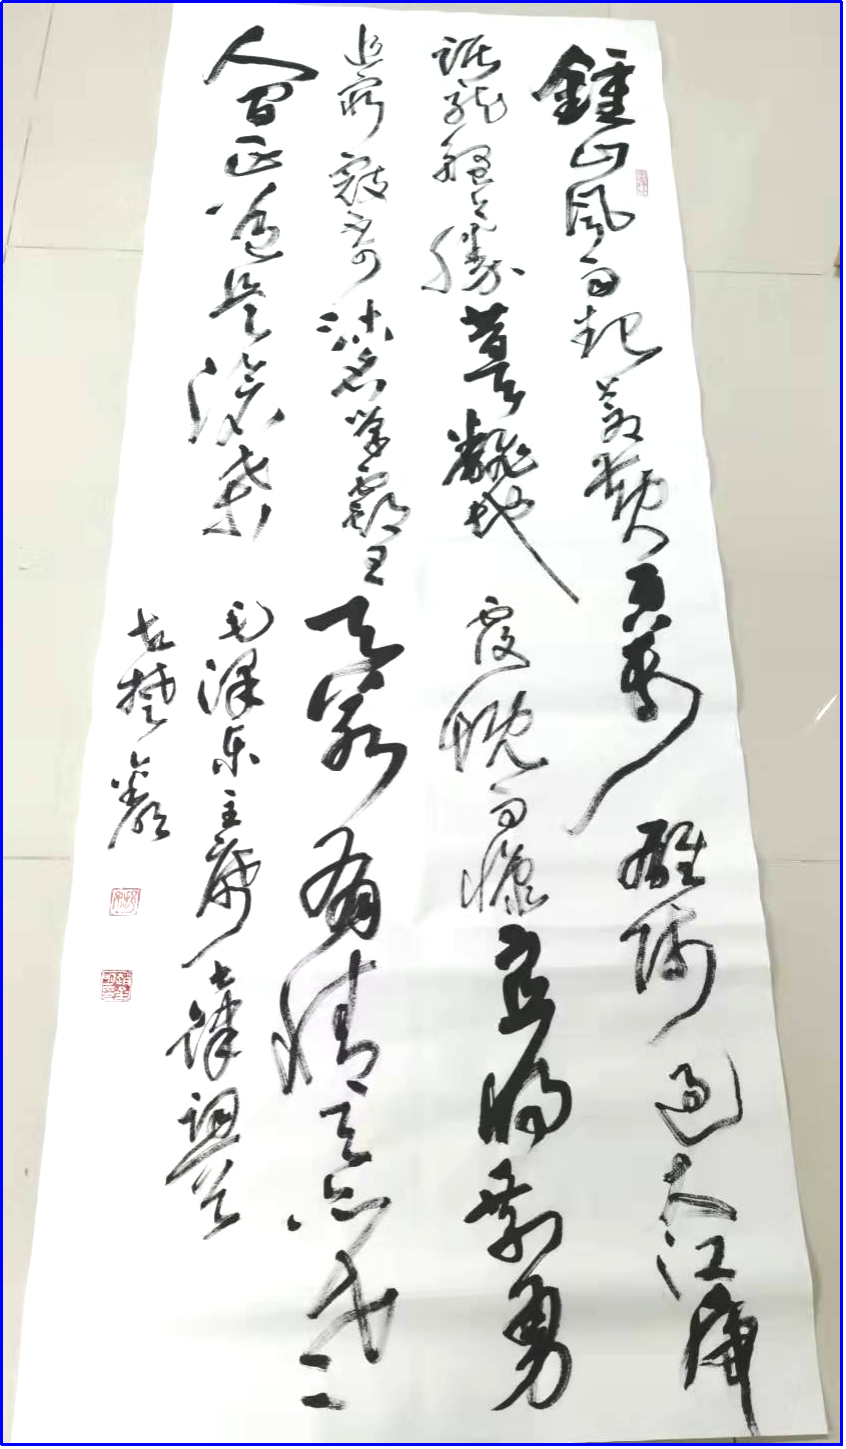 鍾山風雨起蒼黃百萬雄師過大江虎
踞龍盤今勝昔天翻地覆慨而慷宜將剩勇
追窮寇不可沽名學霸王天若有情天亦老
人間正道是滄桑
毛澤東主席七律詞首
古楚